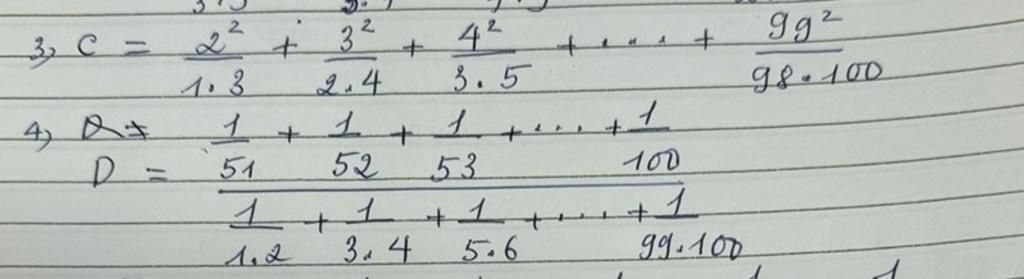 3, C = 2²/1.3 + 3²/2.4 + 4²/3.5 + .... + 99²/98.100
4, D = (1/51 + 1/52 + 1/53 + .... + 1/100) / (1/1.2 + 1/3.4 + 1/5.6 + .... + 1/99.100)